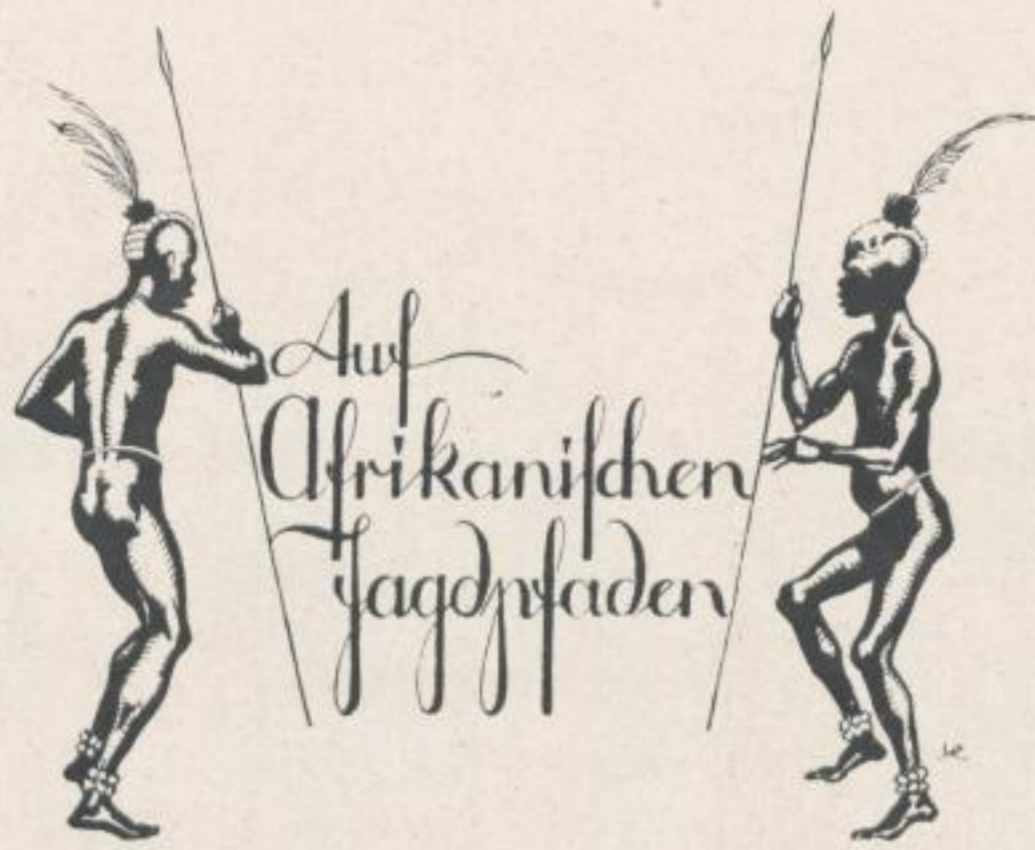 Auf
Afrikaniſchen
Jagdpfaden